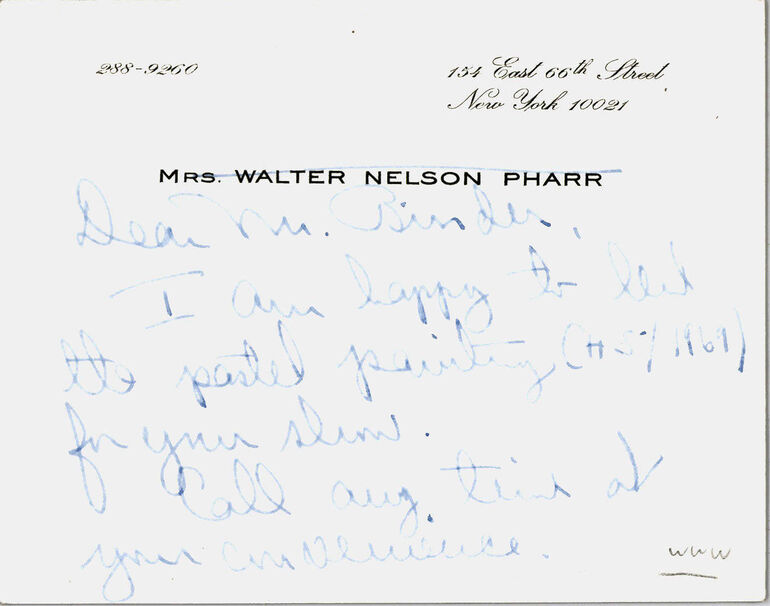 288-9260
154 East 66th Street
New York 10021
Mrs. WALTER NELSON PHARR
Dear Mr. Binder,
I am happy to lend
the pastel painting (#5/1969)
for your show.
Call any time at
your convenience.
www